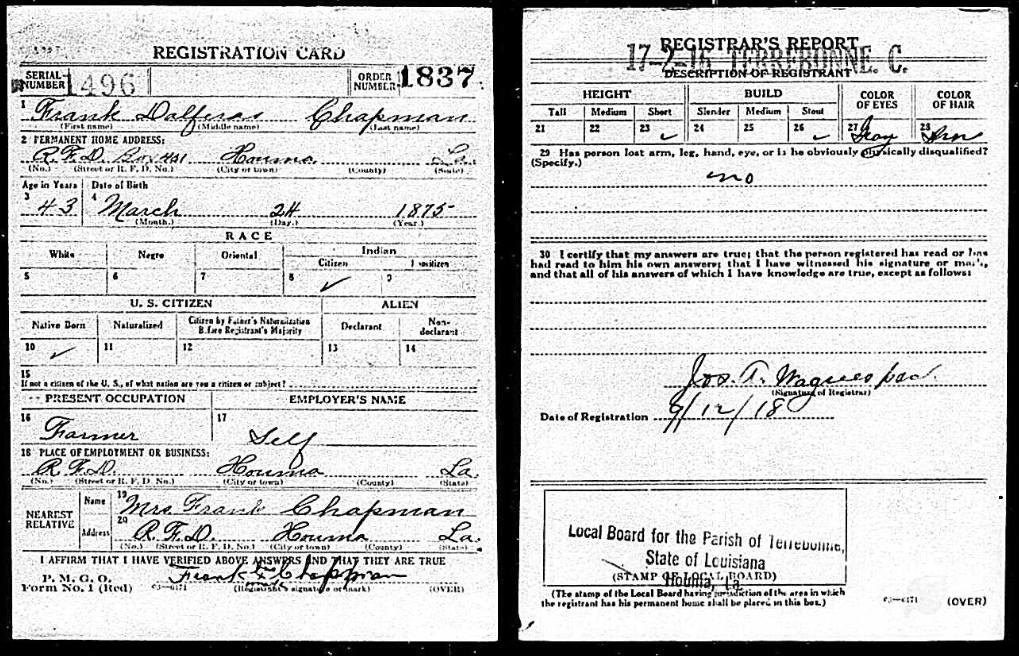 REGISTRATION CARD
SERIAL NUMBER 1496 ORDER NUMBER 1837
1 Frank Chapman
(First name) (Middle name) (Last name)
2 PERMANENT HOME ADDRESS:
R.F.D. Box 431 Houma La.
(No.) (Street or R. F. D. No.) (City or town) (County) (State)
Age in Years Date of Birth
3 43 4 March 24 1875
(Month.) (Day.) (Year.)
RACE
White Negro Oriental Indian
Citizen Noncitizen
5 6 7 8 ✓ 9
U. S. CITIZEN ALIEN
Native Born Naturalized Citizen by Father's Naturalization Before Registrant's Majority Declarant Non-declarant
10 ✓ 11 12 13 14
15
If not a citizen of the U. S., of what nation are you a citizen or subject?
PRESENT OCCUPATION EMPLOYER'S NAME
16 Farmer 17 Self
18 PLACE OF EMPLOYMENT OR BUSINESS:
R.F.D. Houma La.
(No.) (Street or R. F. D. No.) (City or town) (County) (State)
NEAREST RELATIVE Name 19 Mrs Frank Chapman
Address 20 R.F.D. Houma La.
(No.) (Street or R. F. D. No.) (City or town) (County) (State)
I AFFIRM THAT I HAVE VERIFIED ABOVE ANSWERS AND THAT THEY ARE TRUE
P. M. G. O.
Form No. 1 (Red) 03—6171 Frank X Chapman
mark
(Registrant's signature or mark) (OVER)
REGISTRAR'S REPORT
17-2-16 TERREBONNE. C.
DESCRIPTION OF REGISTRANT
HEIGHT BUILD COLOR OF EYES COLOR OF HAIR
Tall Medium Short Slender Medium Stout
21 22 23 ✓ 24 25 26 ✓ 27 Gray 28
29 Has person lost arm, leg, hand, eye, or is he obviously physically disqualified?
(Specify.)
no
30 I certify that my answers are true; that the person registered has read or has
had read to him his own answers; that I have witnessed his signature or mark,
and that all of his answers of which I have knowledge are true, except as follows:
Jos. A.
(Signature of Registrar)
Date of Registration 9/12/18
Local Board for the Parish of Terrebonne,
State of Louisiana
(STAMP OF LOCAL BOARD)
Houma, La.
(The stamp of the Local Board having jurisdiction of the area in which
the registrant has his permanent home shall be placed in this box.)
03—6171 (OVER)